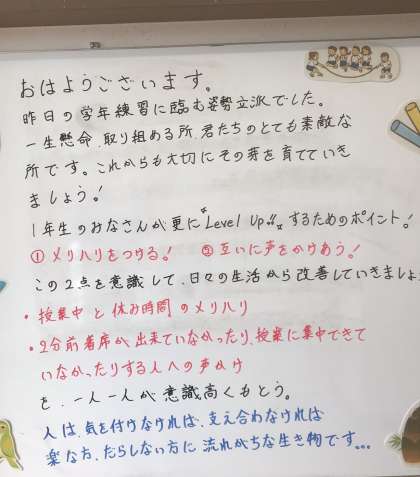 おはようございます。
昨日の学年練習に臨む姿勢立派でした。
一生懸命、取り組める所、君たちのとても素敵な
所です。これからも大切にその芽を育てていき
ましょう!
1年生のみなさんが更に"Level Up!!"するためのポイント!
①メリハリをつける! ②互いに声をかけあう!
この2点を意識して、日々の生活から改善していきましょ
・授業中と休み時間のメリハリ
・2分前着席が出来ていなかったり、授業に集中できて
いなかったりする人への声かけ
を、一人一人が意識高くもとう。
人は、気を付けなければ、支え合わなければ
楽な方、だらしない方に流れがちな生き物です...